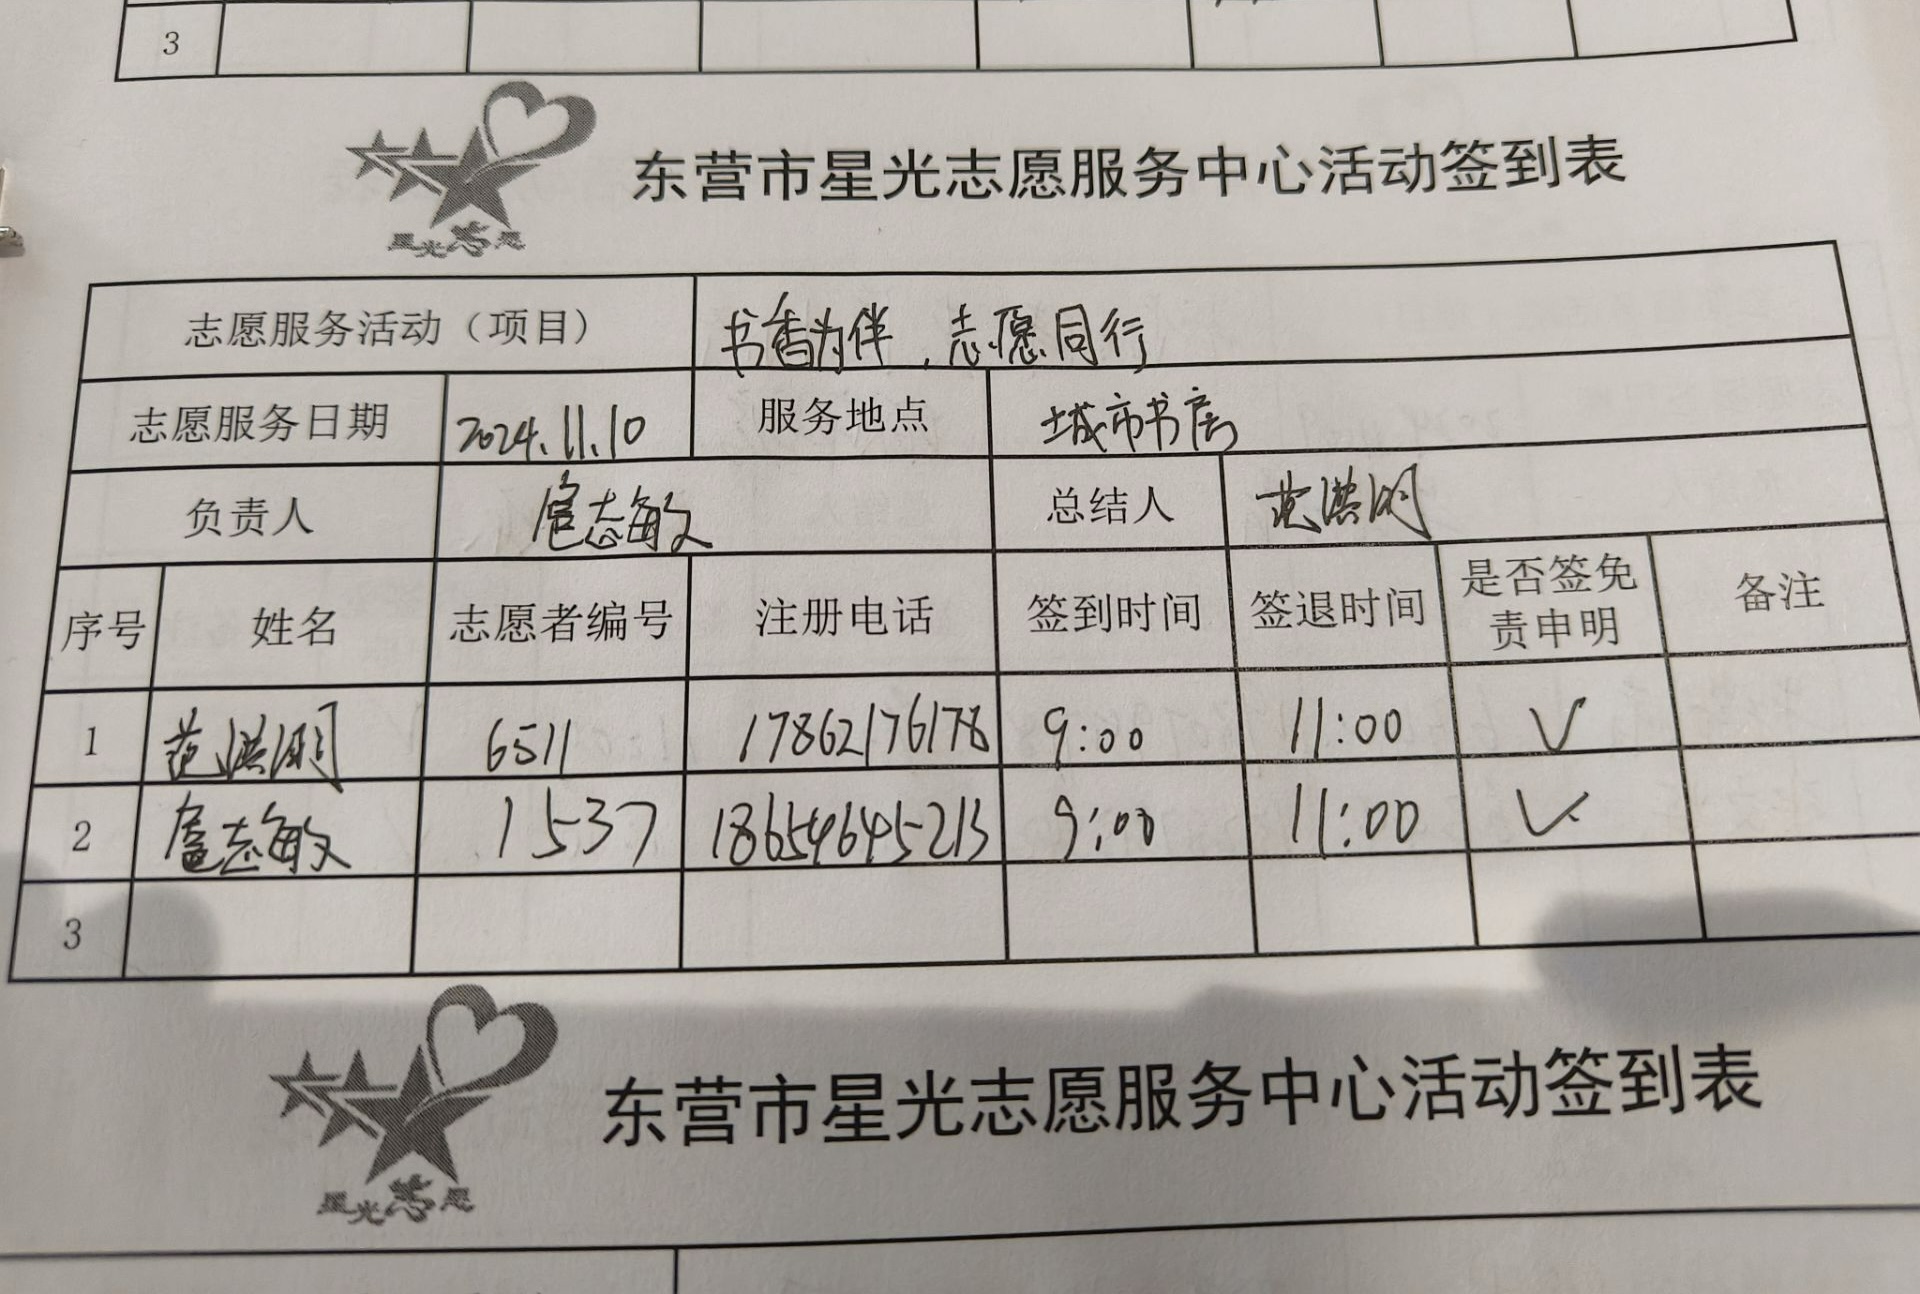 3
星光志愿
东营市星光志愿服务中心活动签到表
志愿服务活动（项目） 书香为伴，志愿同行
志愿服务日期 2024.11.10 服务地点 城市书房
负责人 扈志敏 总结人 范洪明
序号 姓名 志愿者编号 注册电话 签到时间 签退时间 是否签免责申明 备注
1 范洪明 6511 17862176178 9:00 11:00 √
2 扈志敏 1537 18654645213 9:00 11:00 √
3
星光志愿
东营市星光志愿服务中心活动签到表